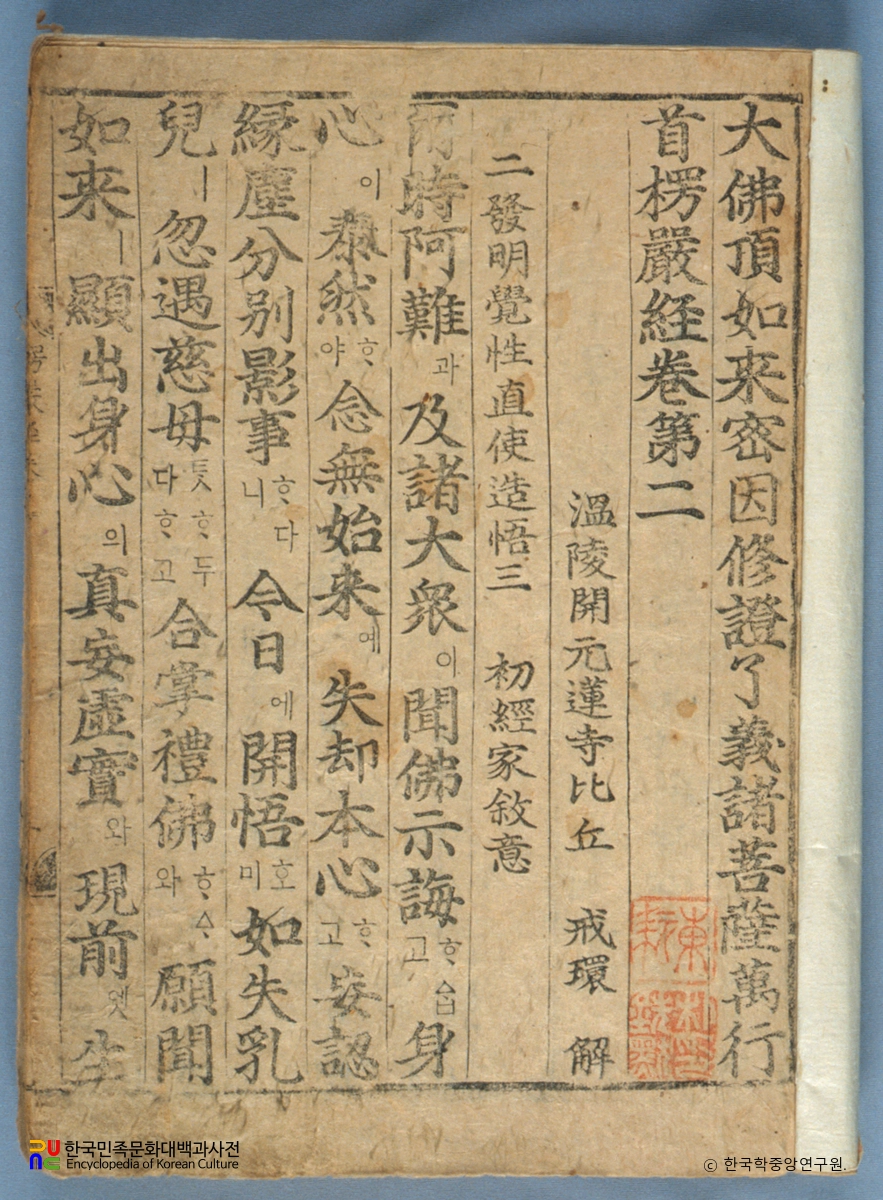 大佛頂如来密因修證了義諸菩薩萬行
首楞嚴経卷第二
溫陵開元蓮寺比丘 戒環 解
二發明覺性直使造悟三 初經家敘意
爾時阿難과及諸大衆이聞佛示誨ᄒᆞᅀᆞᆸ고身
心이泰然ᄒᆞ야念無始来예失却本心ᄒᆞ고妄認
縁塵分别影事ᄒᆞ다니今日에開悟호미如失乳
兒ㅣ忽遇慈母듯ᄒᆞ두다ᄒᆞ고合掌禮佛ᄒᆞᅀᆞ와願聞
如来ㅣ顯出身心의真妄虛實와現前엣生
한국민족문화대백과사전
Encyclopedia of Korean Culture
© 한국학중앙연구원.